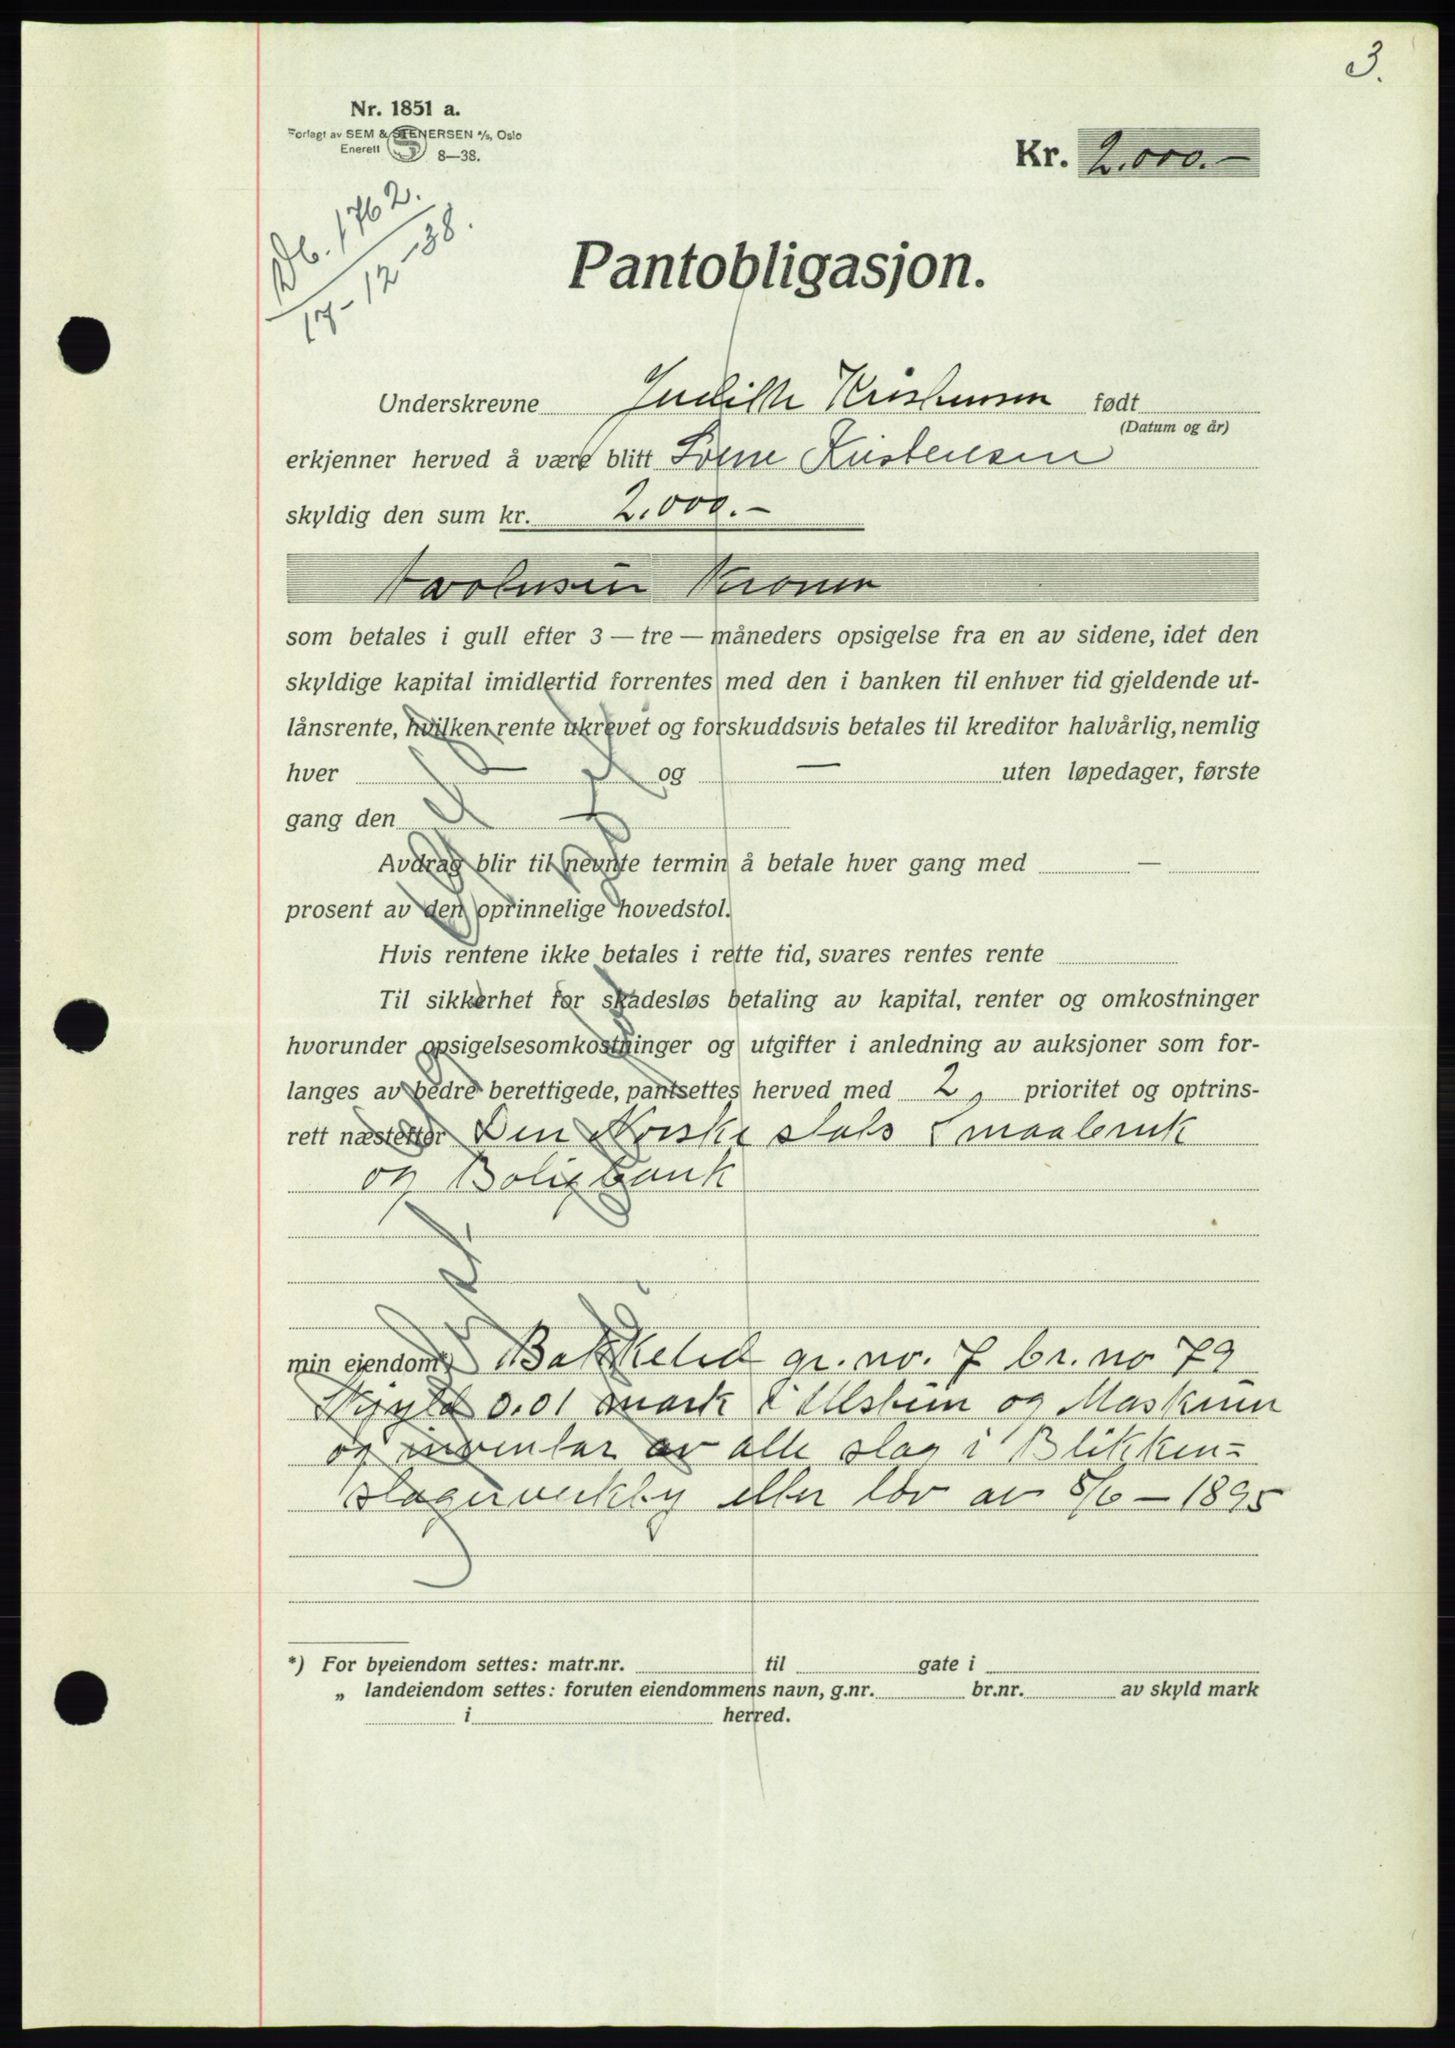 3.
Nr. 1851 a.
Forlagt av SEM & STENERSEN A/S, Oslo
Enerett 8—38.
Kr. 2.000.-
Db. 1762.
17-12-38.
Pantobligasjon.
Underskrevne Judith Kristensen født
(Datum og år)
erkjenner herved å være blitt Sverre Kristensen
skyldig den sum kr. 2.000.-
Totusen Kroner
som betales i gull efter 3 — tre — måneders opsigelse fra en av sidene, idet den
skyldige kapital imidlertid forrentes med den i banken til enhver tid gjeldende ut-
lånsrente, hvilken rente ukrevet og forskuddsvis betales til kreditor halvårlig, nemlig
hver — og — uten løpedager, første
gang den —
Avdrag blir til nevnte termin å betale hver gang med —
prosent av den oprinnelige hovedstol.
Hvis rentene ikke betales i rette tid, svares rentes rente
Til sikkerhet for skadesløs betaling av kapital, renter og omkostninger
hvorunder opsigelsesomkostninger og utgifter i anledning av auksjoner som for-
langes av bedre berettigede, pantsettes herved med 2, prioritet og optrins-
rett næstefter Den Norske stats Smaabruk
og Boligbank
min eiendom*) Bakkelid gr. no. 7 br. no 79
Skyld 0.01 mark i Ulstein og Maskiner
og inventar av alle slag i Blikken=
slagerverkby eller lov av 8/6 - 1895
Avlyst
*) For byeiendom settes: matr.nr. til gate i
„ landeiendom settes: foruten eiendommens navn, g.nr. br.nr. av skyld mark
i herred.